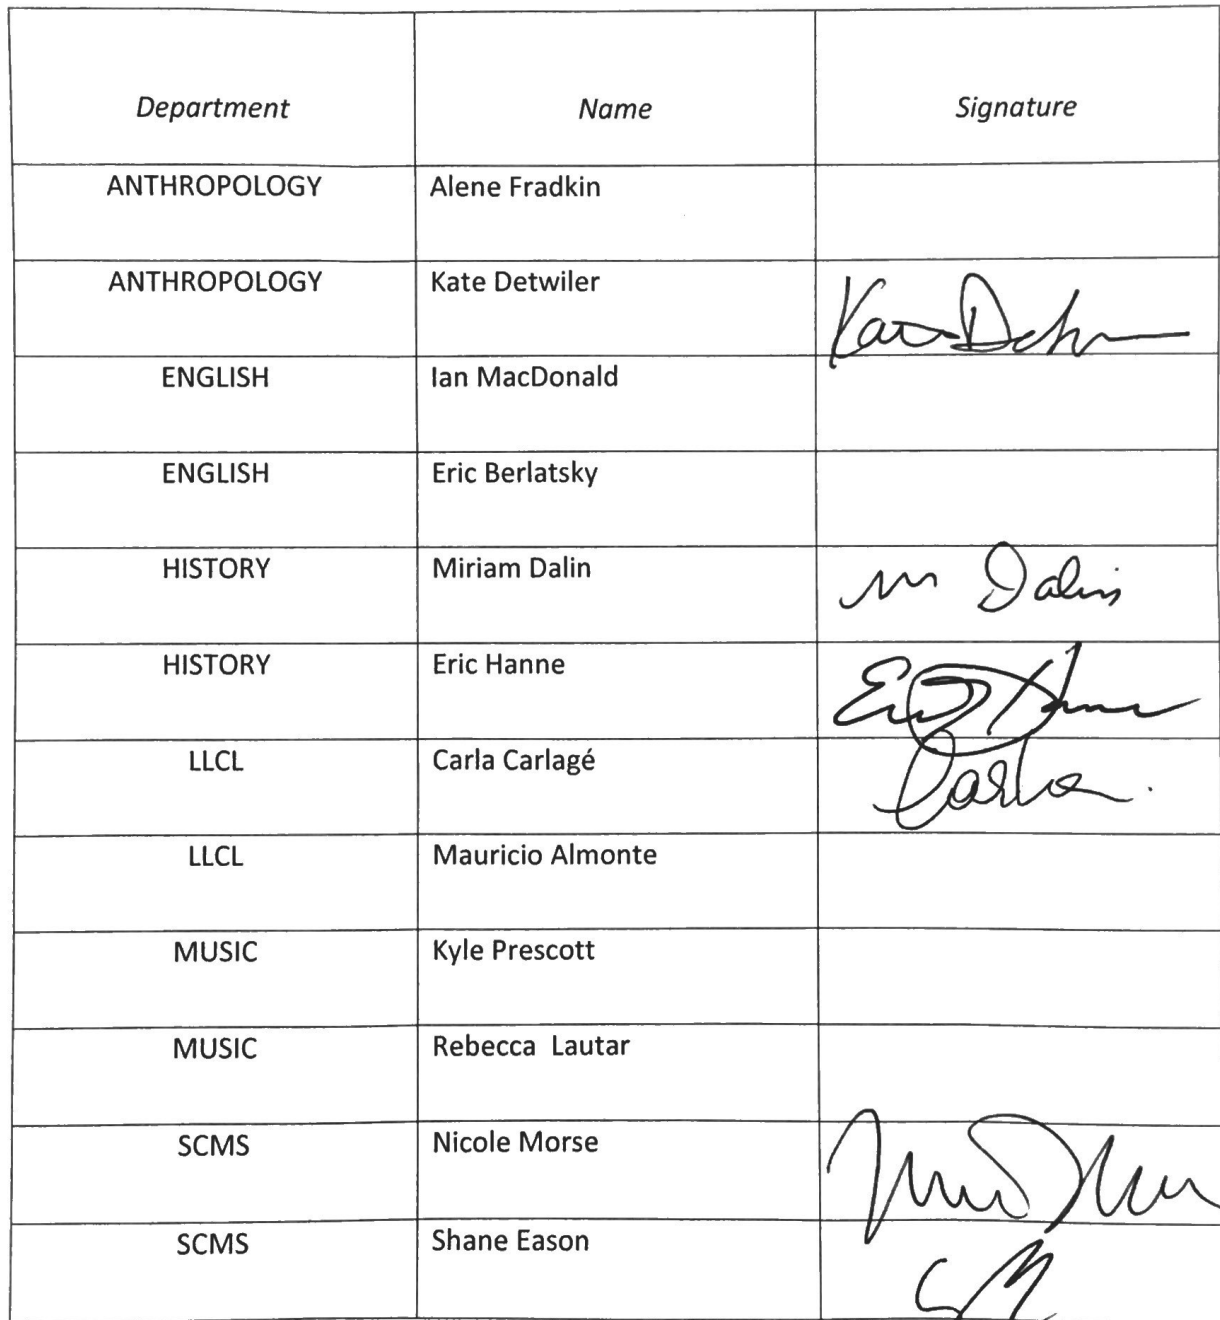 Department Name Signature
ANTHROPOLOGY Alene Fradkin
ANTHROPOLOGY Kate Detwiler
ENGLISH Ian MacDonald
ENGLISH Eric Berlatsky
HISTORY Miriam Dalin M Dalin
HISTORY Eric Hanne Eric Hanne
LLCL Carla Carlagé Carla
LLCL Mauricio Almonte
MUSIC Kyle Prescott
MUSIC Rebecca Lautar
SCMS Nicole Morse
SCMS Shane Eason